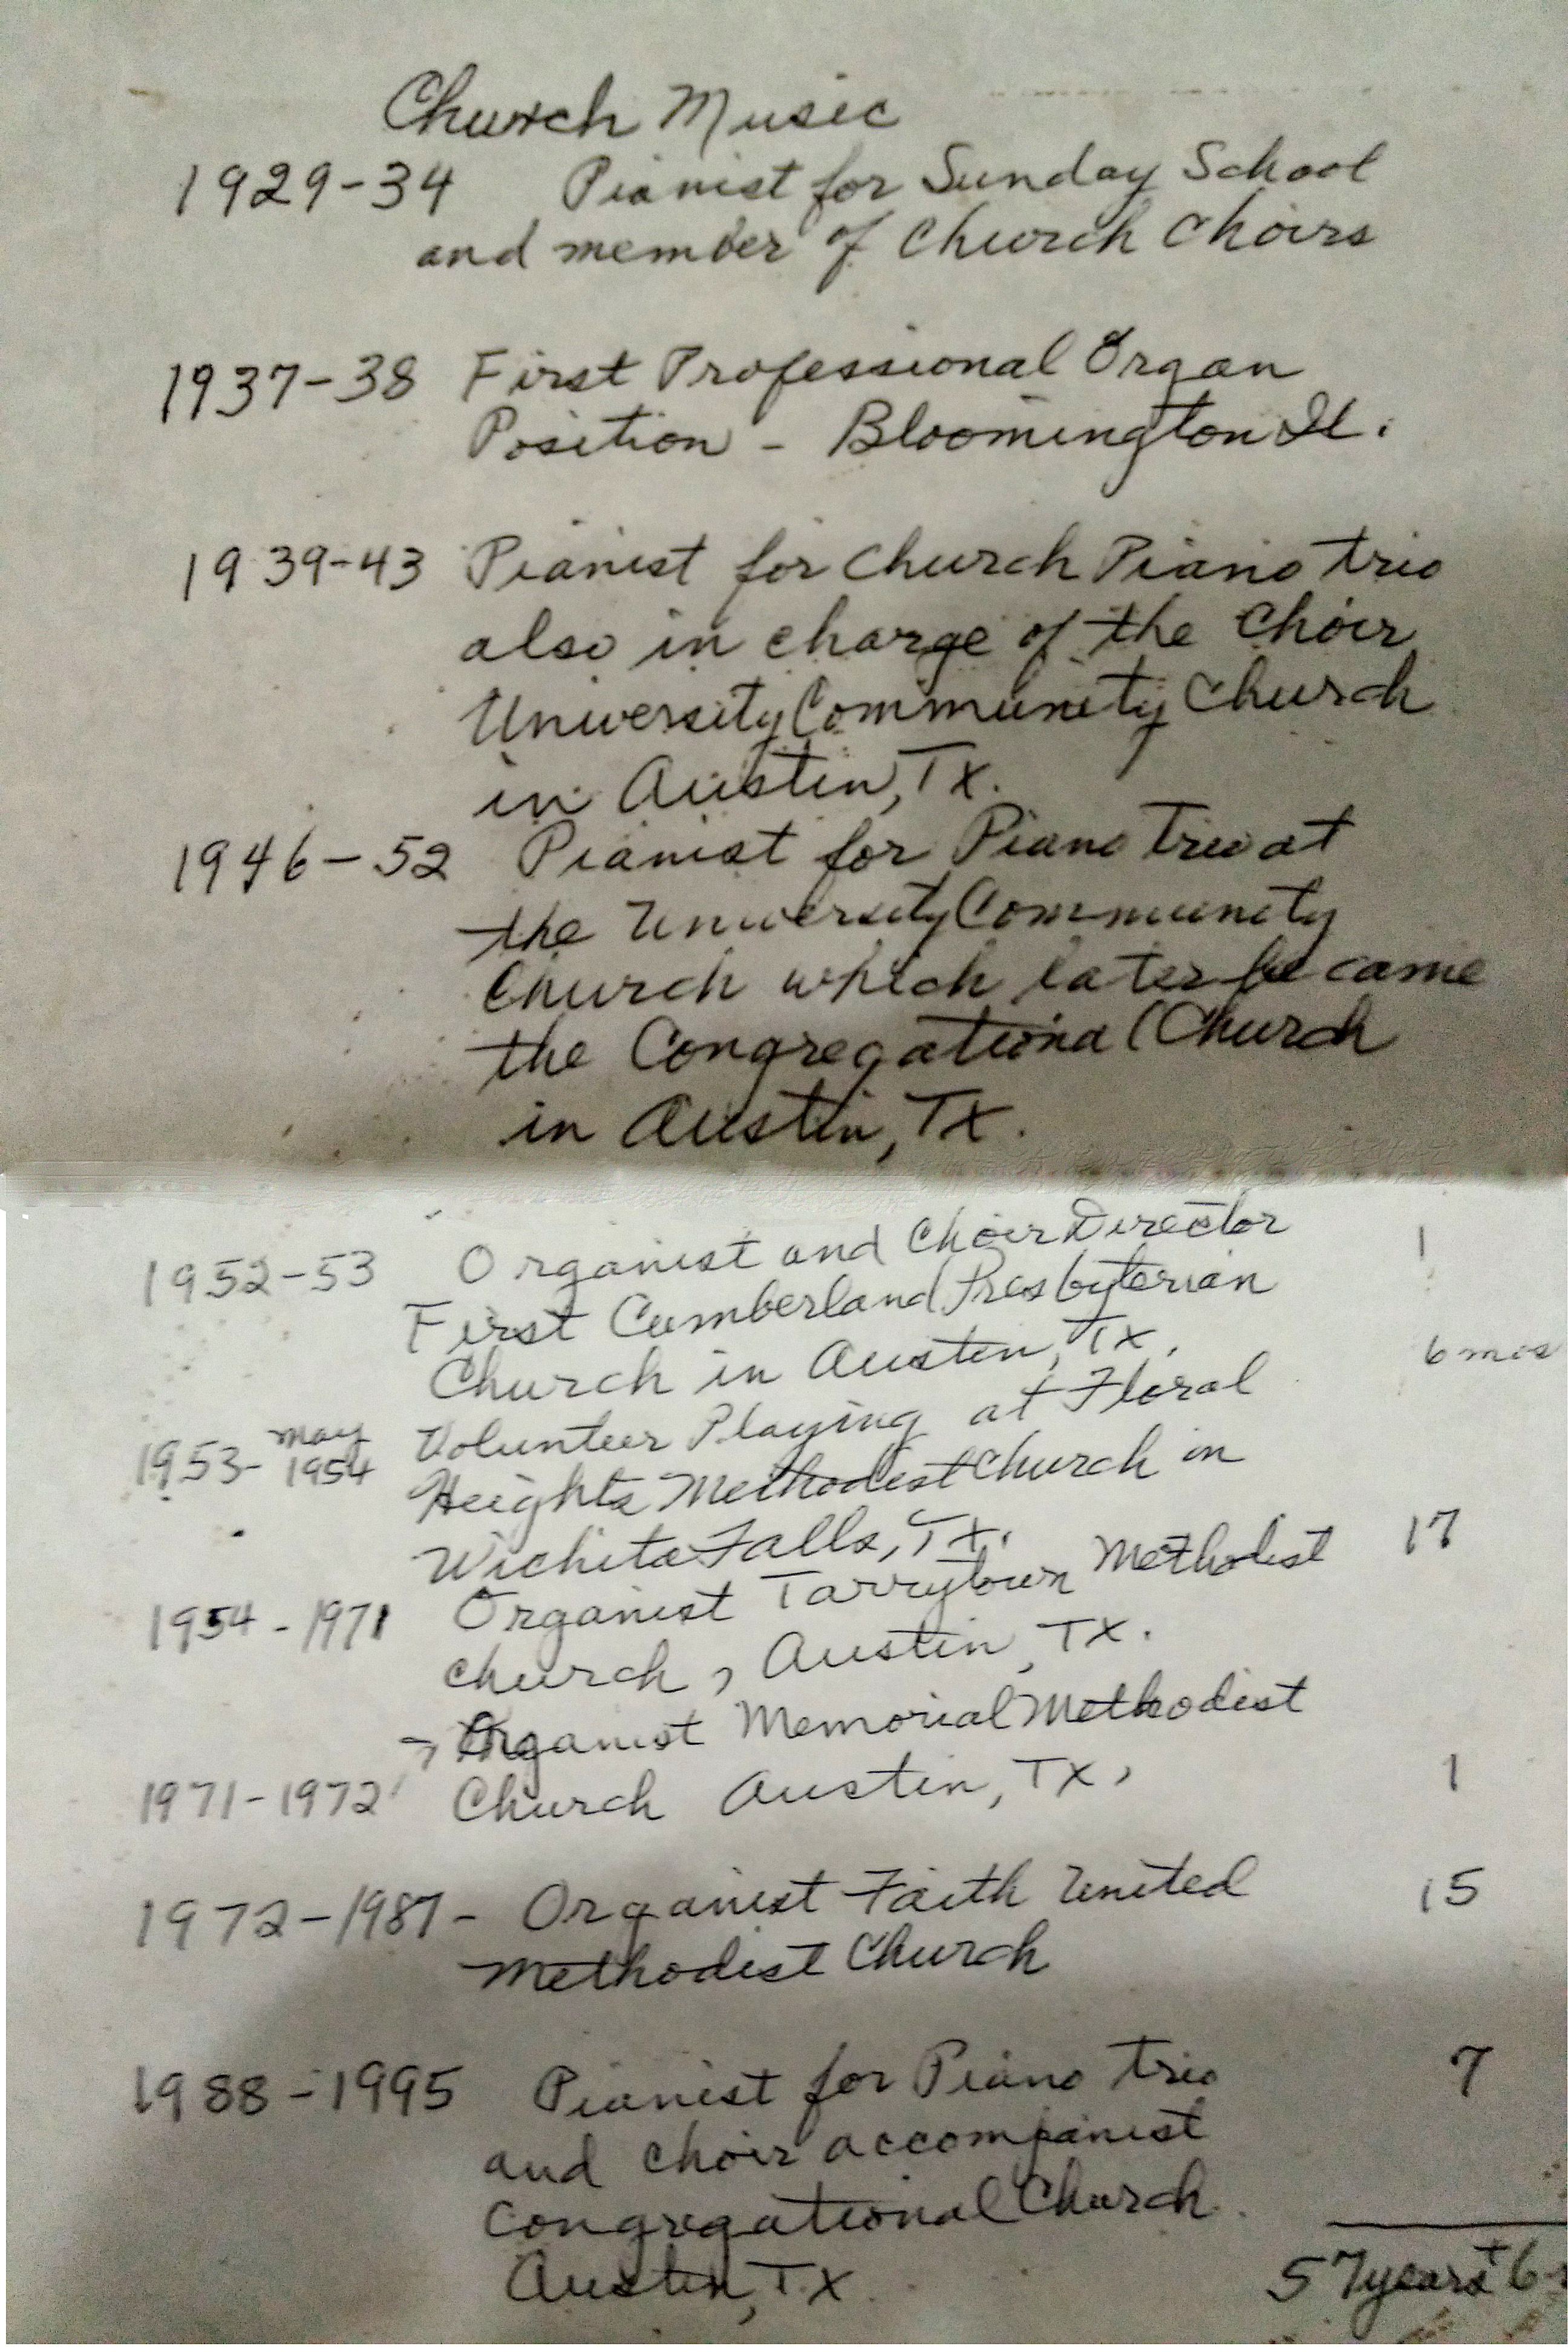 Church Music
1929-34 Pianist for Sunday School
and member of Church Choirs
1937-38 First Professional Organ
Position - Bloomington Il.
1939-43 Pianist for Church Piano trio
also in charge of the Choir
University Community Church
in Austin, Tx.
1946-52 Pianist for Piano Trio at
the University Community
Church which later became
the Congregational Church
in Austin, TX.
1952-53 Organist and Choir Director 1
First Cumberland Presbyterian
Church in Austin, Tx. 6 mos
1953- May 1954 Volunteer Playing at Floral
Heights Methodist Church in
Wichita Falls, Tx.
1954-1971 Organist Tarrytown Methodist 17
church, Austin, TX.
→ Organist Memorial Methodist
1971-1972 Church Austin, TX, 1
1972-1987- Organist Faith United 15
Methodist Church
1988-1995 Pianist for Piano trio 7
and choir accompanist
Congregational Church
Austin, TX
57 years + 6